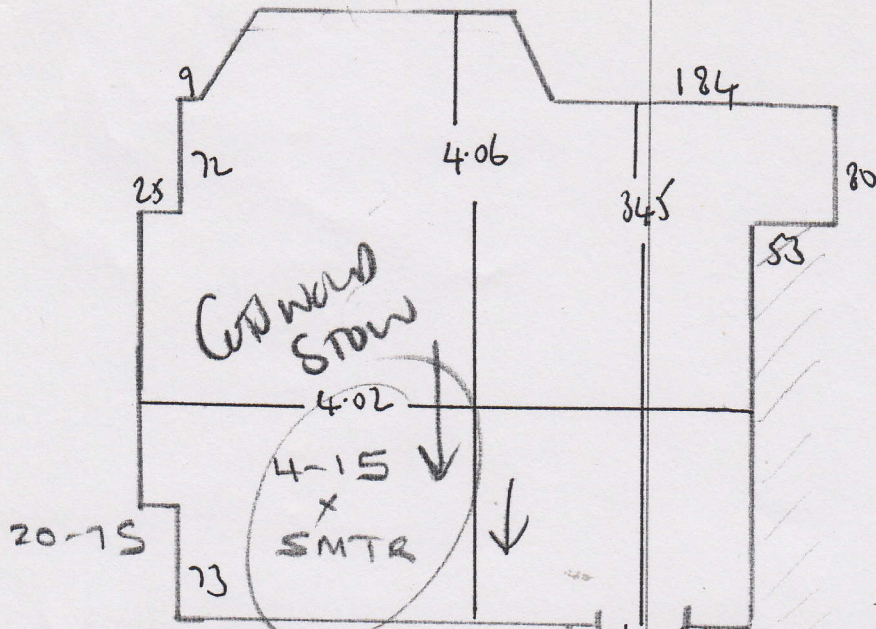 9
184
72
4.06
80
25
345
53
COTSWOLD
STOW
4.02
4-15
x
5MTR
20-75
73